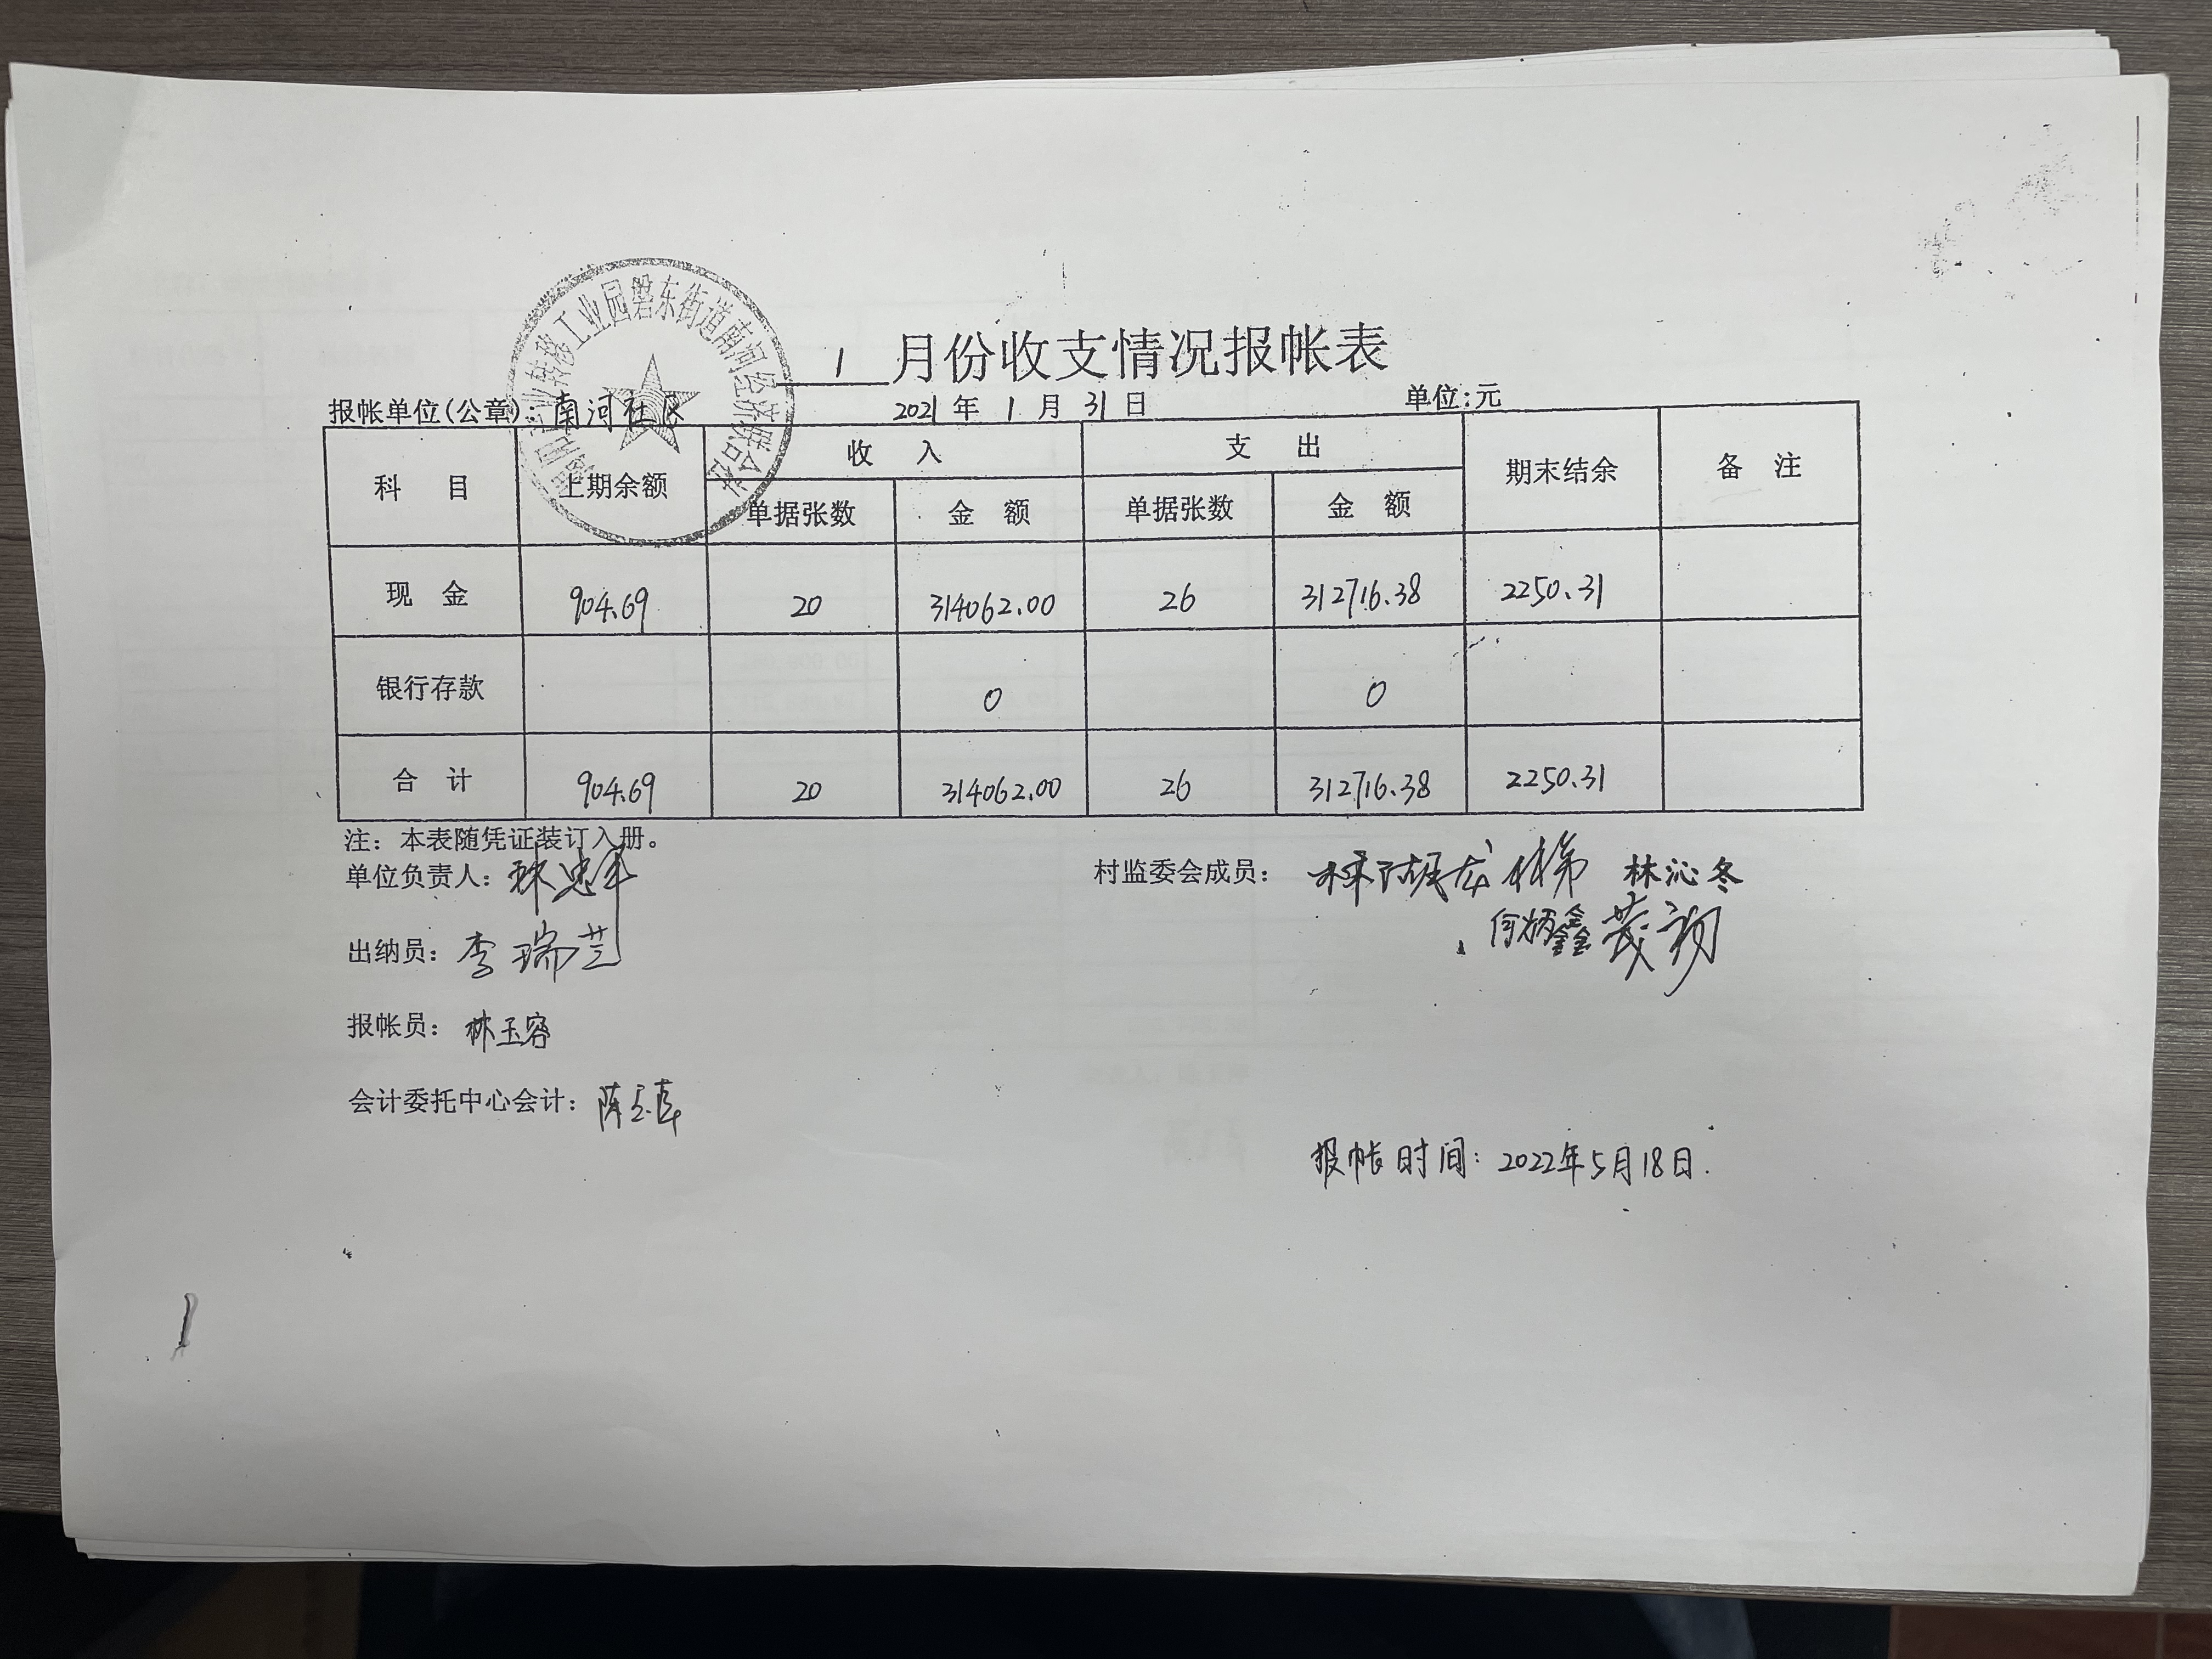 业转移工业园磐东街道南河经济联合社
1 月份收支情况报帐表
报帐单位(公章): 南河社区 2021 年 1 月 31 日 单位:元
科 目 上期余额 收 入 支 出 期末结余 备 注
单据张数 金 额 单据张数 金 额
现 金 904.69 20 314062.00 26 312716.38 2250.31
银行存款 0 0
合 计 904.69 20 314062.00 26 312716.38 2250.31
注: 本表随凭证装订入册。
单位负责人: 林忠军 村监委会成员: 林沁冬
何炳鑫
出纳员: 李瑞芸
报帐员: 林玉容
会计委托中心会计: 陈
报帐时间: 2022年5月18日.